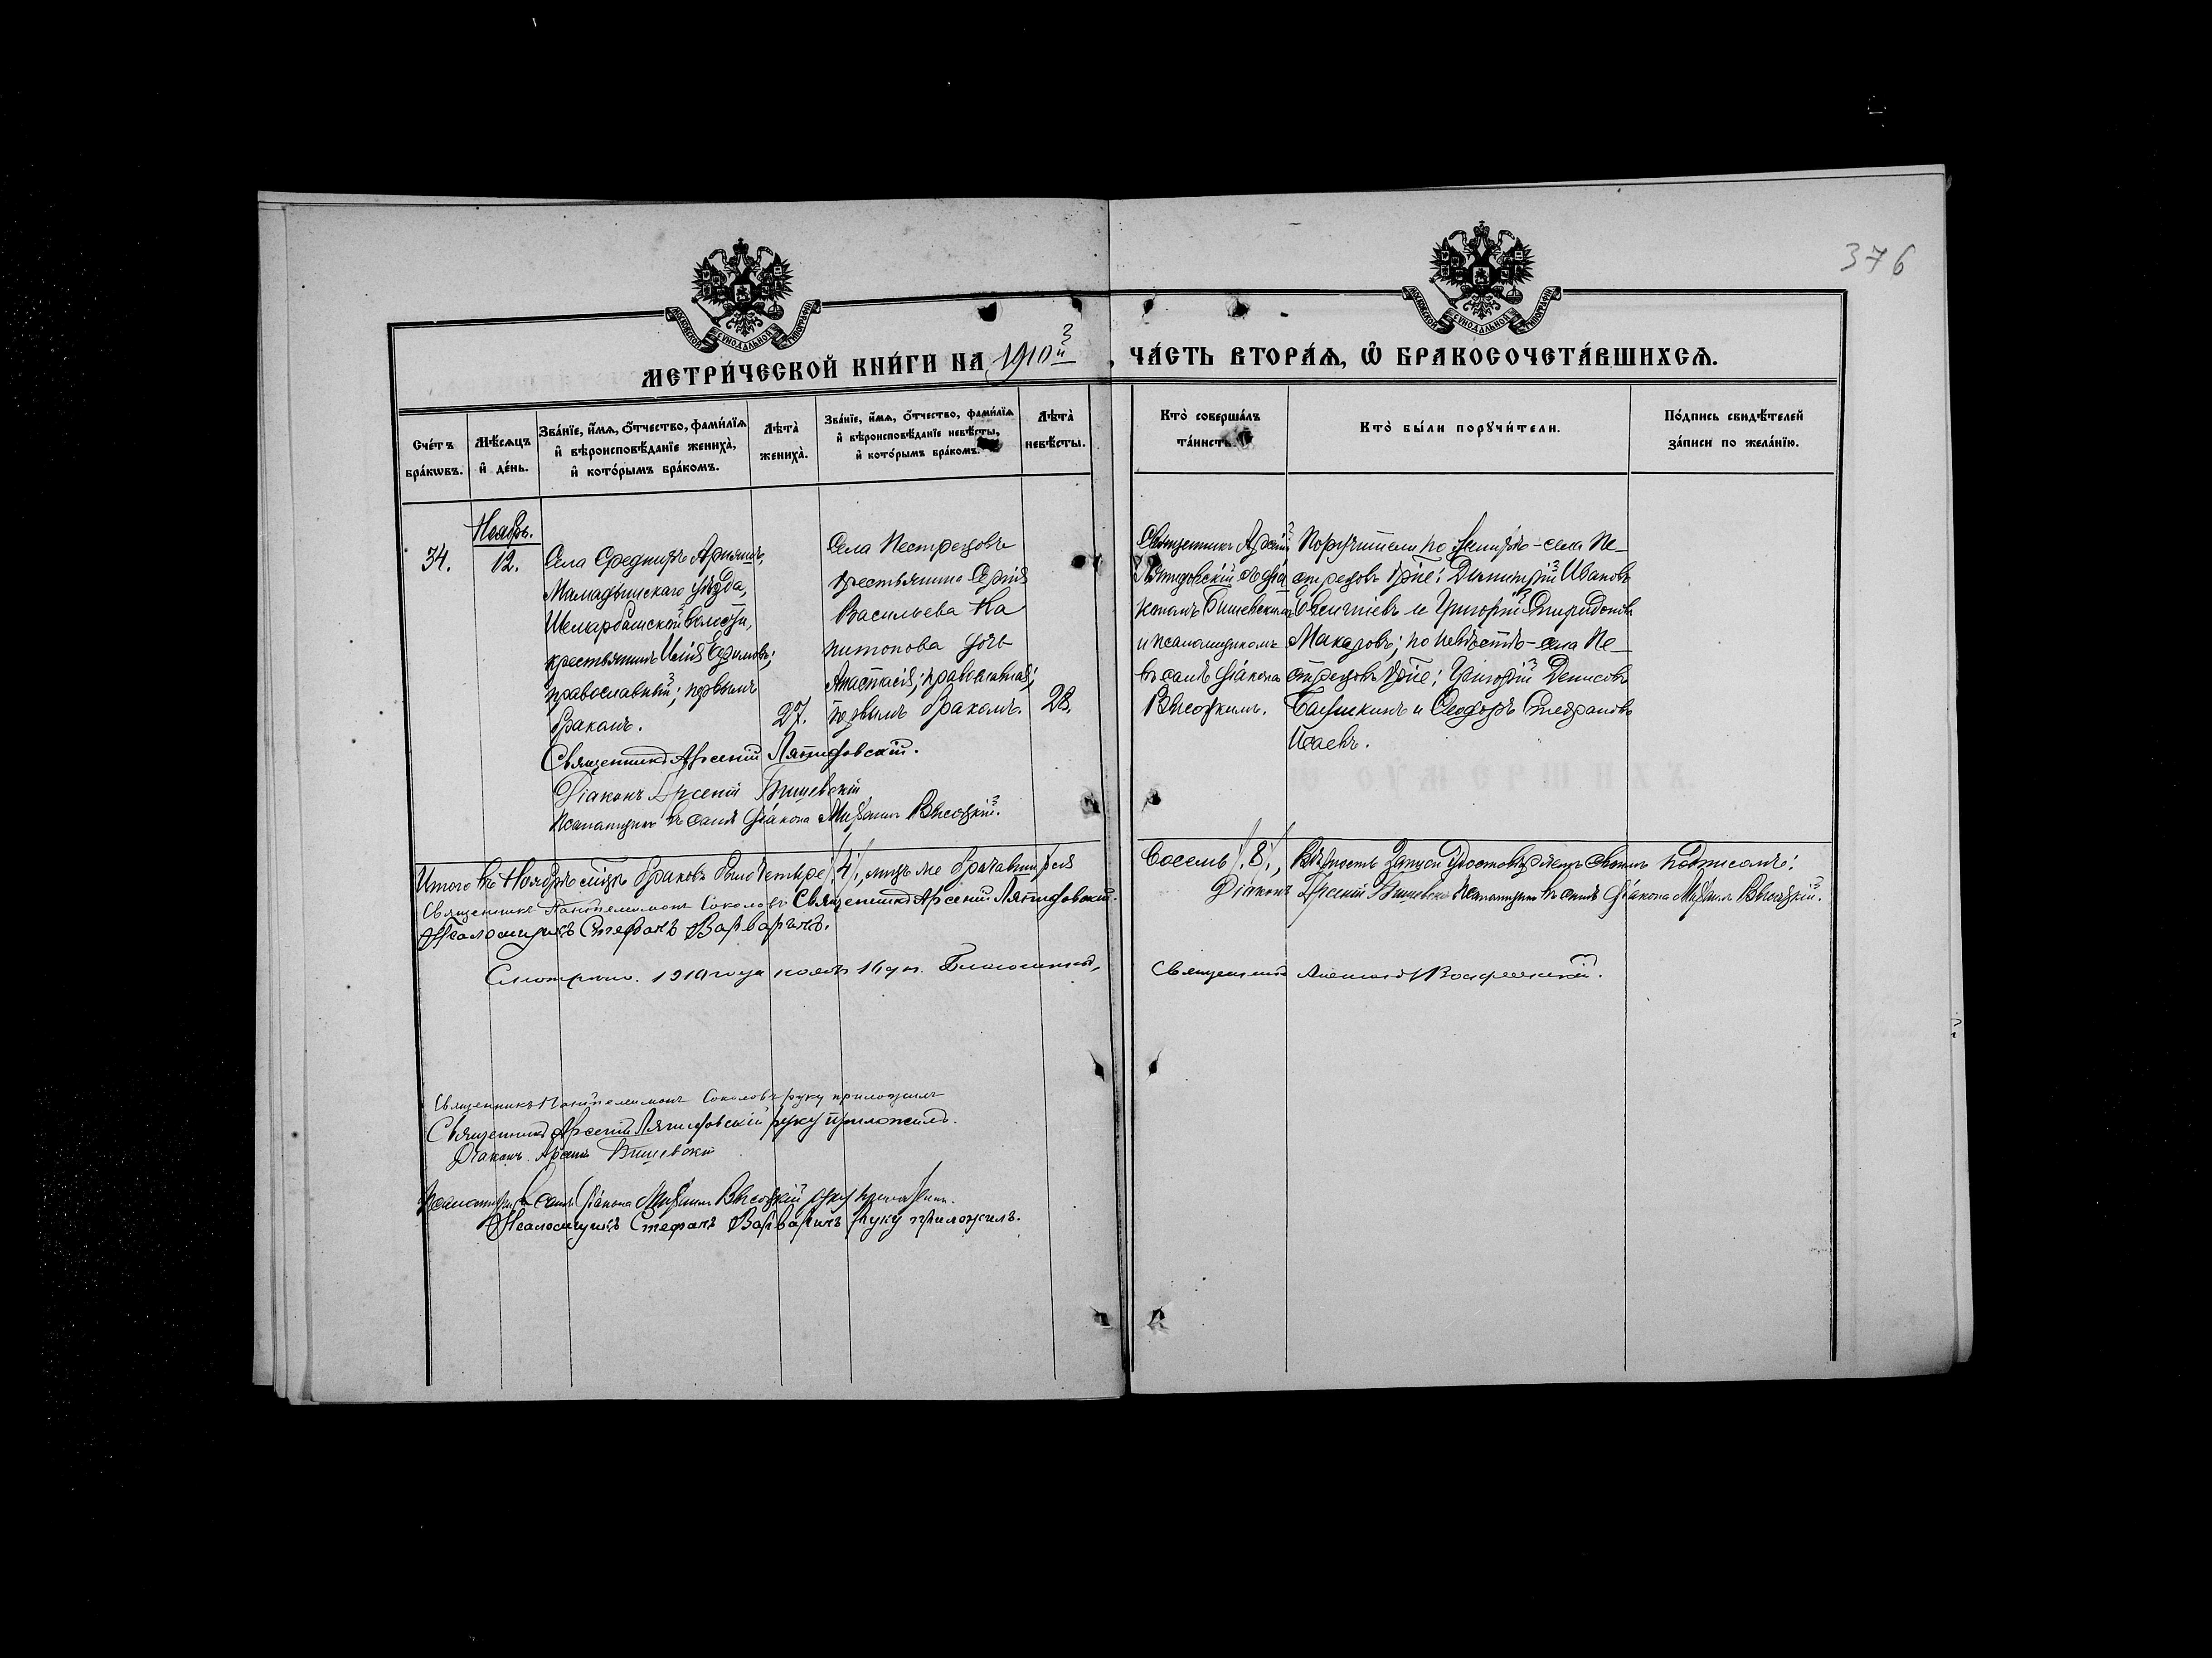 376
МОСКОВСКОЙ СѴНОДАЛЬНОЙ ТИПОГРАФІИ
МОСКОВСКОЙ СѴНОДАЛЬНОЙ ТИПОГРАФІИ
МЕТРИ́ЧЕСКОЙ КНИ́ГИ НА 1910й, ЧА́СТЬ ВТОРА́Ѧ, Ѽ БРАКОСОЧЕТА́ВШИХСѦ.
Сче́тъ бра́кѡвъ.
Мѣ́сѧцъ и҆ де́нь.
Зва́нїе, и҆́мѧ, ѻ҆́тчество, фами́лїѧ
и҆ вѣроисповѣ́данїе жениха̀,
и҆ кото́рымъ бра́комъ.
Лѣ́та̀ жениха̀.
Зва́нїе, и҆́мѧ, ѻ҆́тчество, фами́лїѧ
и҆ вѣроисповѣ́данїе невѣ́сты,
и҆ кото́рымъ бра́комъ.
Лѣ́та̀ невѣ́сты.
Кто̀ соверша́лъ
та́инств
Кто̀ бы́ли порꙋчи́тели.
По́дпись свидѣ́телей
за́писи по жела́нїю.
Ноябрь.
34.
12.
Села Среднихъ
Мамадышскаго уѣзда,
Шемарбашской волости,
крестьянинъ Илія Ефимовъ;
православный; первымъ
бракомъ.
27.
Села Пестрецовъ
крестьянина Сергія
Васильева Ка
питонова дочь
Анастасія; православная;
первымъ бракомъ.
28.
Священникъ Арсеній
Ляпидовскій съ діа
кономъ Бишевскимъ
и псаломщикомъ
въ санѣ діакона
Высоцкимъ.
Поручители по женихѣ - села Пе-
стрецовъ кр-не: Димитрій Ивановъ
и Григорій Спиридоновъ
Макаровъ; по невѣстѣ - села Пе-
стрецовъ кр-не: Григорій Денисовъ
и Ѳеодоръ Стефановъ
Исаевъ.
Священникъ Арсеній Ляпидовскій.
Діаконъ Арсеній Бишевскій
Псаломщикъ въ санѣ діакона Михаилъ Высоцкій.
Итого въ Ноябрѣ м-цѣ браковъ было четыре /4/, лицъ же брачавшихся
восемь /8/, Вѣрность записи удостовѣряемъ своимъ подписомъ:
Священникъ Пантелеимонъ Соколовъ Священникъ Арсеній Ляпидовскій.
Діаконъ Арсеній Бишевскій Псаломщикъ въ санѣ діакона Михаилъ Высоцкій.
Псаломщикъ Стефанъ Варваринъ.
Смотрѣно. 1910 года нояб. 16 дн. Благочинный,
Священникъ
Священникъ Пантелеимонъ Соколовъ руку приложилъ
Священникъ Арсеній Ляпидовскій руку приложилъ.
Діаконъ Арсеній Бишевскій
Псаломщикъ въ санѣ діакона Михаилъ Высоцкій руку приложилъ.
Псаломщикъ Стефанъ Варваринъ руку приложилъ.